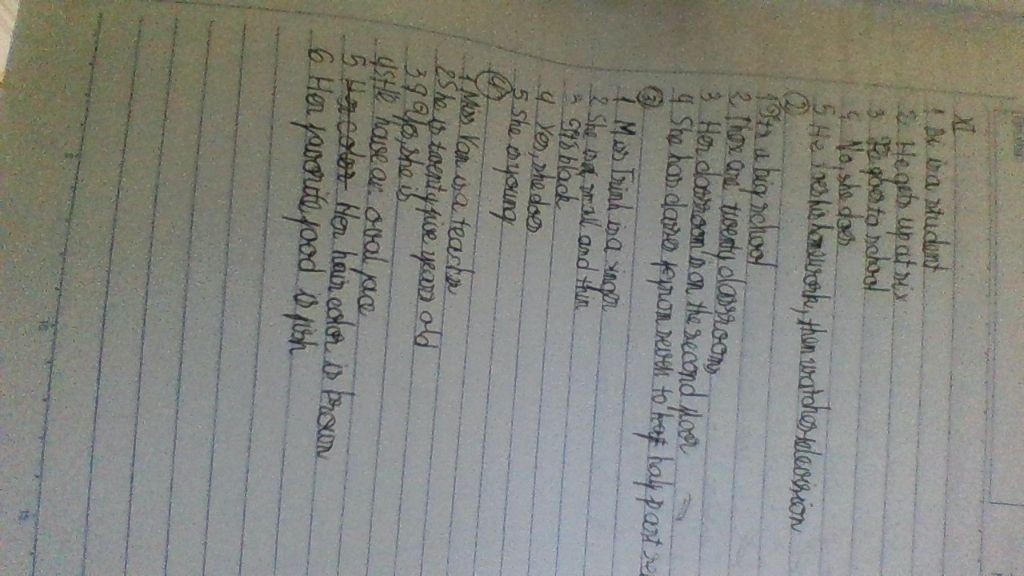 XI
1 Ba is a student
2 He gets up at six
3 He goes to school
4 No, she does
5 He does his homework, then watches television
②
1 It's a big school
2 There are twenty classrooms
3 Her classroom is on the second floor
4 She has classes from seven to half past
③
1 Miss Trinh is a singer
2 She is small and thin
3 black
4 Yes, she does
5 She is young
④
1 Miss Van is a teacher
2 She is twenty five years old
3 Yes, she is
4 She have an oval face
5 Her hair color is brown
6 Her favorite food is fish